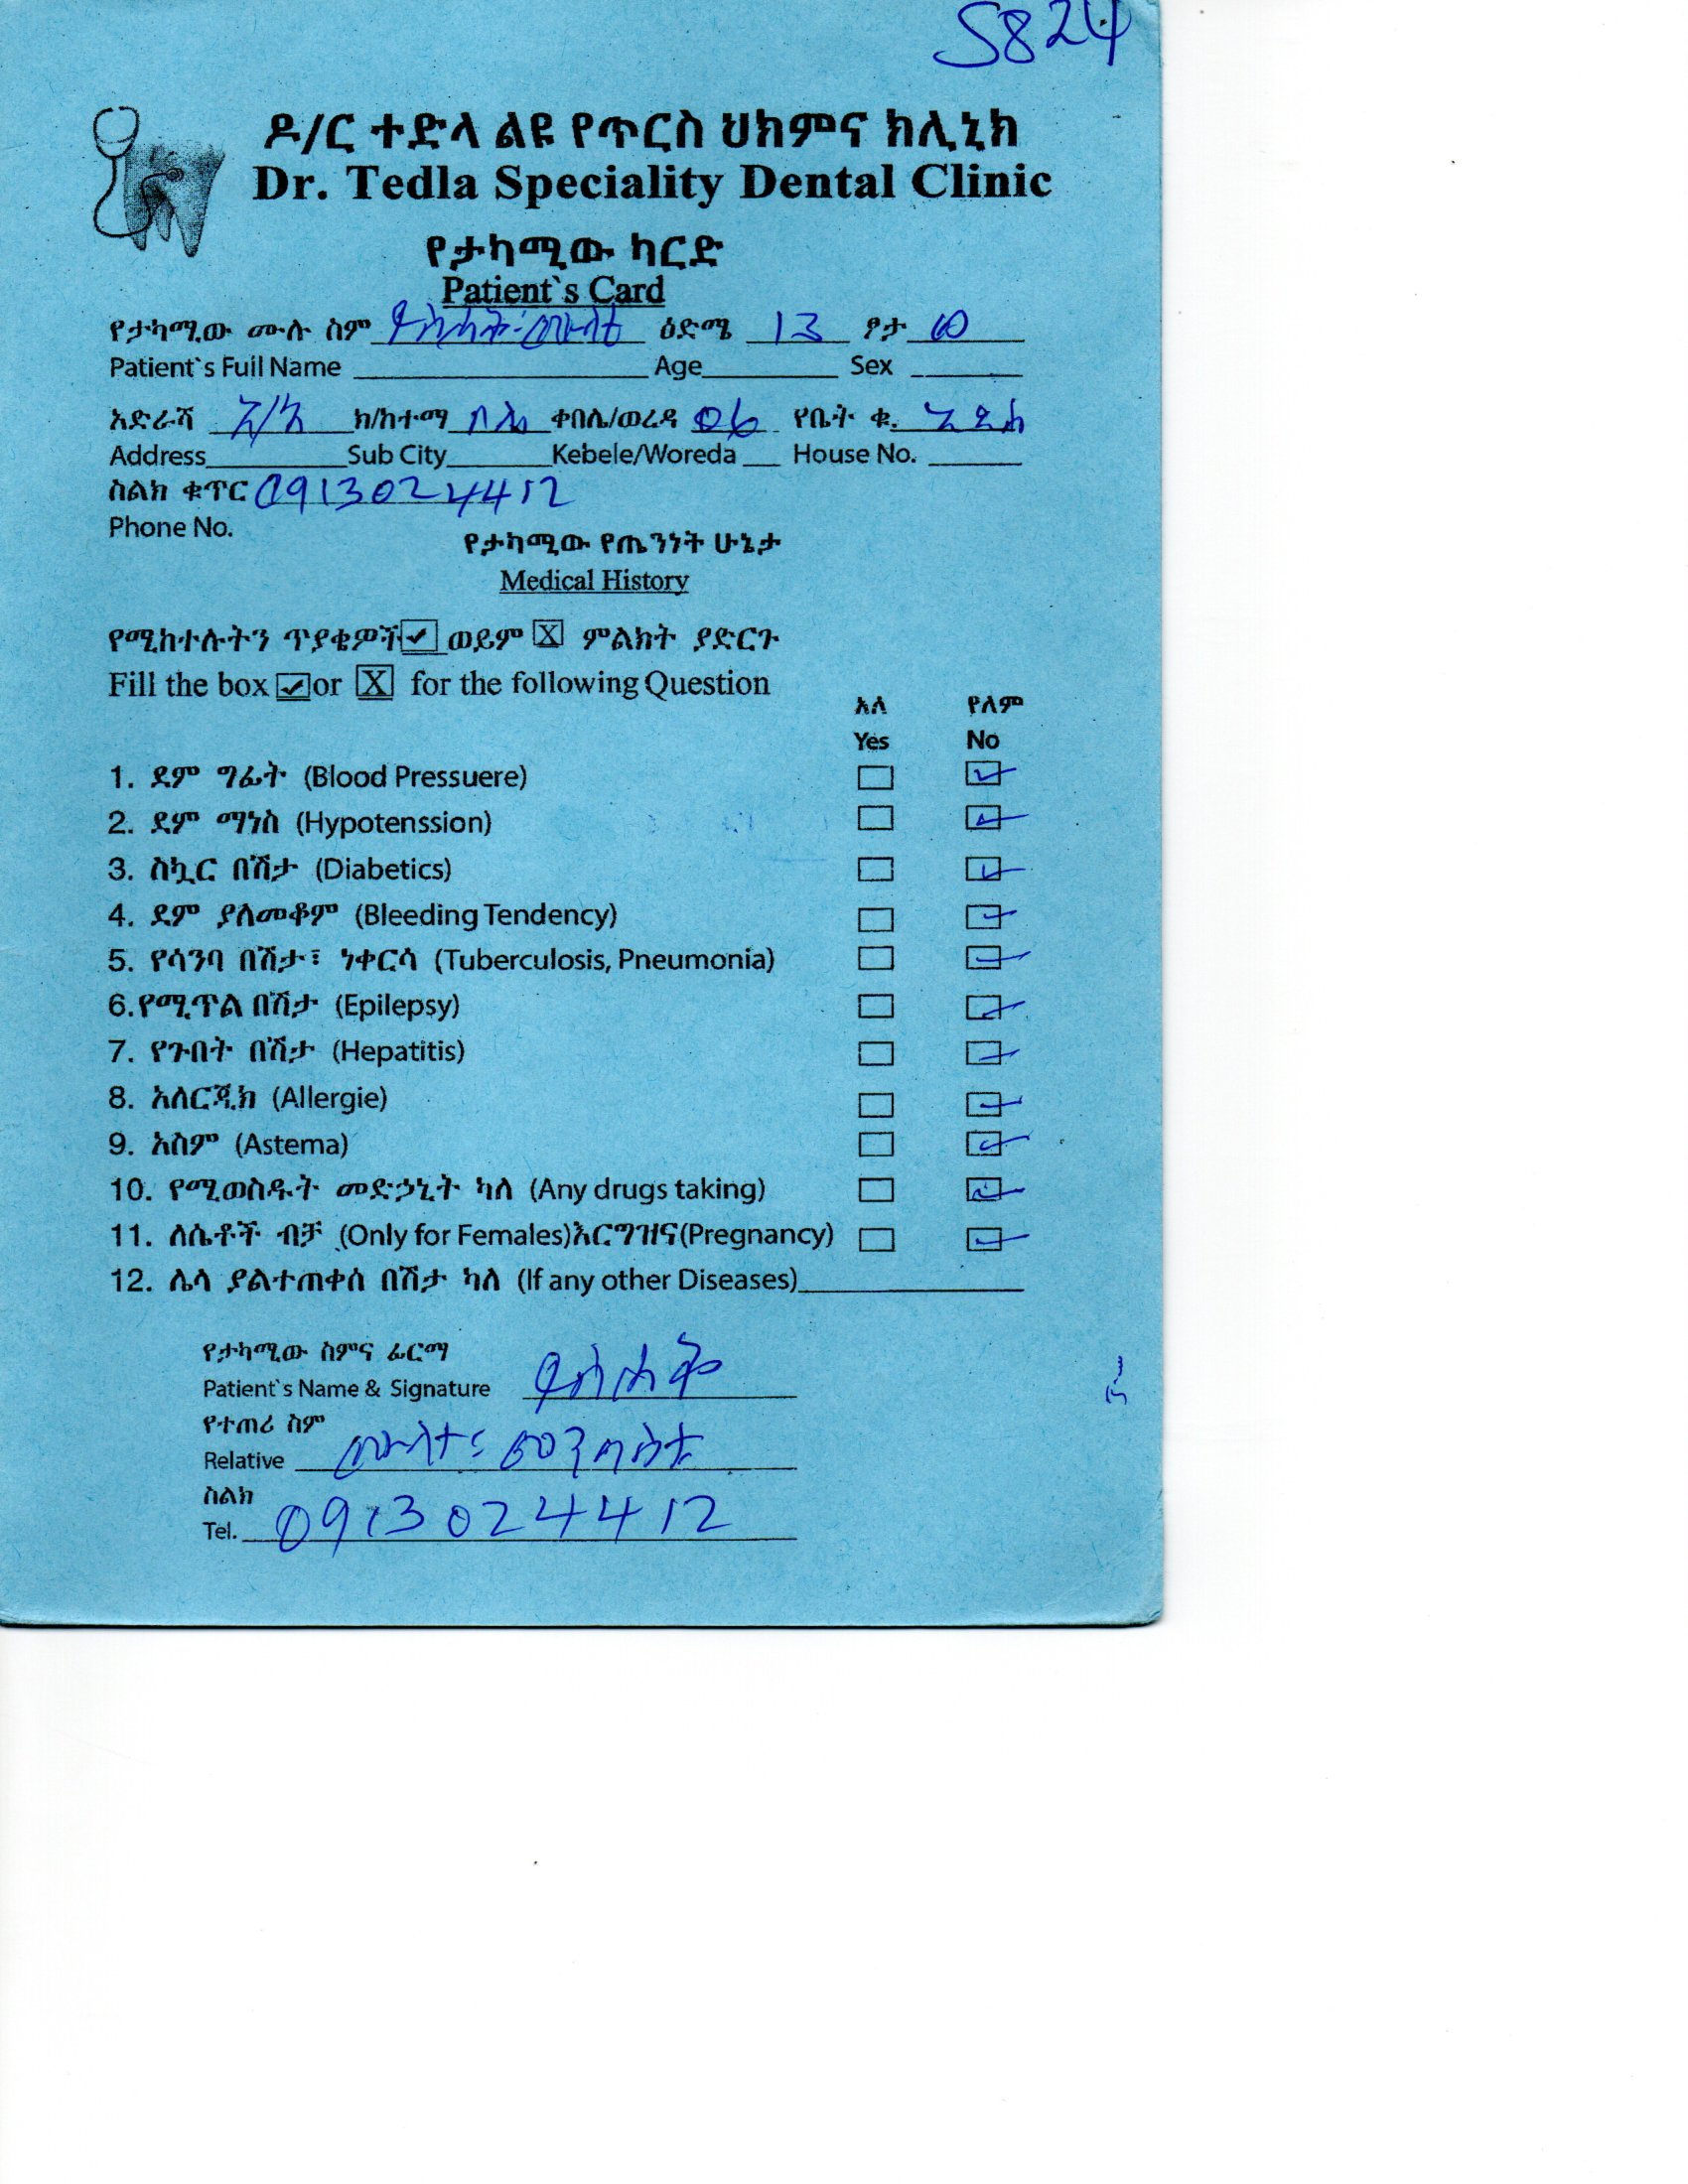 5824
ዶ/ር ተድላ ልዩ የጥርስ ህክምና ክሊኒክ
Dr. Tedla Speciality Dental Clinic
የታካሚው ካርድ
Patient`s Card
የታካሚው ሙሉ ስም ይስሐቅ ሙሉ ዕድሜ 13 ፆታ ወ
Patient`s Full Name Age Sex
አድራሻ አ/አ ክ/ከተማ ቦሌ ቀበሌ/ወረዳ 06 የቤት ቁ. አዲስ
Address Sub City Kebele/Woreda House No.
ስልክ ቁጥር 0913024412
Phone No.
የታካሚው የጤንነት ሁኔታ
Medical History
የሚከተሉትን ጥያቄዎች ✓ ወይም X ምልክት ያድርጉ
Fill the box ✓ or X for the following Question
አለ የለም
Yes No
1. ደም ግፊት (Blood Pressuere) ✓
2. ደም ማነስ (Hypotenssion) ✓
3. ስኳር በሽታ (Diabetics) ✓
4. ደም ያለመቆም (Bleeding Tendency) ✓
5. የሳንባ በሽታ፣ ነቀርሳ (Tuberculosis, Pneumonia) ✓
6.የሚጥል በሽታ (Epilepsy) ✓
7. የጉበት በሽታ (Hepatitis) ✓
8. አለርጂክ (Allergie) ✓
9. አስም (Astema) ✓
10. የሚወስዱት መድኃኒት ካለ (Any drugs taking) ✓
11. ለሴቶች ብቻ (Only for Females)እርግዝና(Pregnancy) ✓
12. ሌላ ያልተጠቀሰ በሽታ ካለ (If any other Diseases)
የታካሚው ስምና ፊርማ
Patient`s Name & Signature ይስሐቅ
የተጠሪ ስም
Relative
ስልክ
Tel. 0913024412